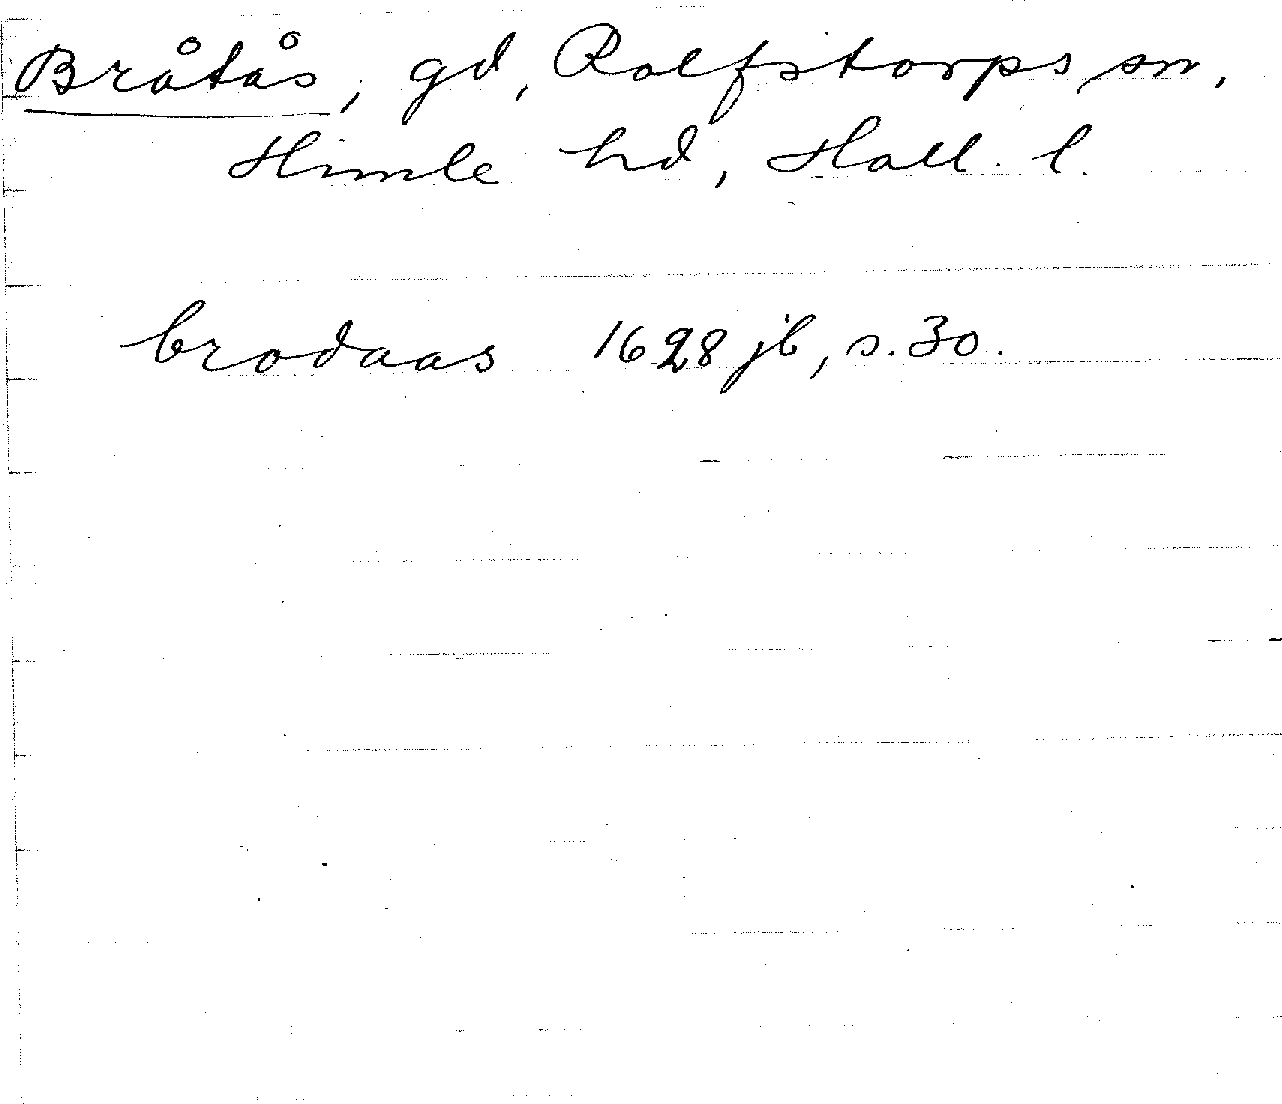 Bråtås, gd, Rolfstorps sn,
Himle hd, Hall. l.
brodaas 1628 jb, s. 30.